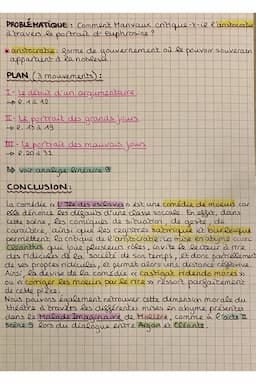 PROBLÉMATIQUE: Comment Marivaux critique-t-il l'aristocratie
à travers le portrait d'Euphrosine ?
• aristocratie: forme de gouvernement où le pouvoir souverain
appartient à la noblesse
PLAN (3 mouvements):
I - Le début d'un argumentaire
→ l. 1 à 12
II - Le portrait des grands jours
→ l. 13 à 19
III - Le portrait des mauvais jours
→ l. 20 à 31
↳ voir analyse linéaire
CONCLUSION:
La comédie « L'île des esclaves » est une comédie de moeurs car
elle dénonce les défauts d'une classe sociale. En effet, dans
cette scène, les comiques de situation, de geste, de
caractère, ainsi que les registres satirique et burlesque
permettent la critique de l'aristocratie. La mise en abyme avec
Cléanthis qui joue plusieurs rôles, invite le lecteur à rire
des ridicules de la société de son temps, et donc partiellement
de ses propres ridicules, et permet alors une distance réflexive.
Ainsi, la devise de la comédie « castigat ridendo mores »
ou « corriger les moeurs par le rire » ressort parfaitement
de cette pièce.
Nous pouvons également retrouver cette dimension morale du
théâtre à travers les différentes mises en abyme présentes
dans le Malade Imaginaire de Molière, comme à l'acte II
scène 5 lors du dialogue entre Argan et Cléante.